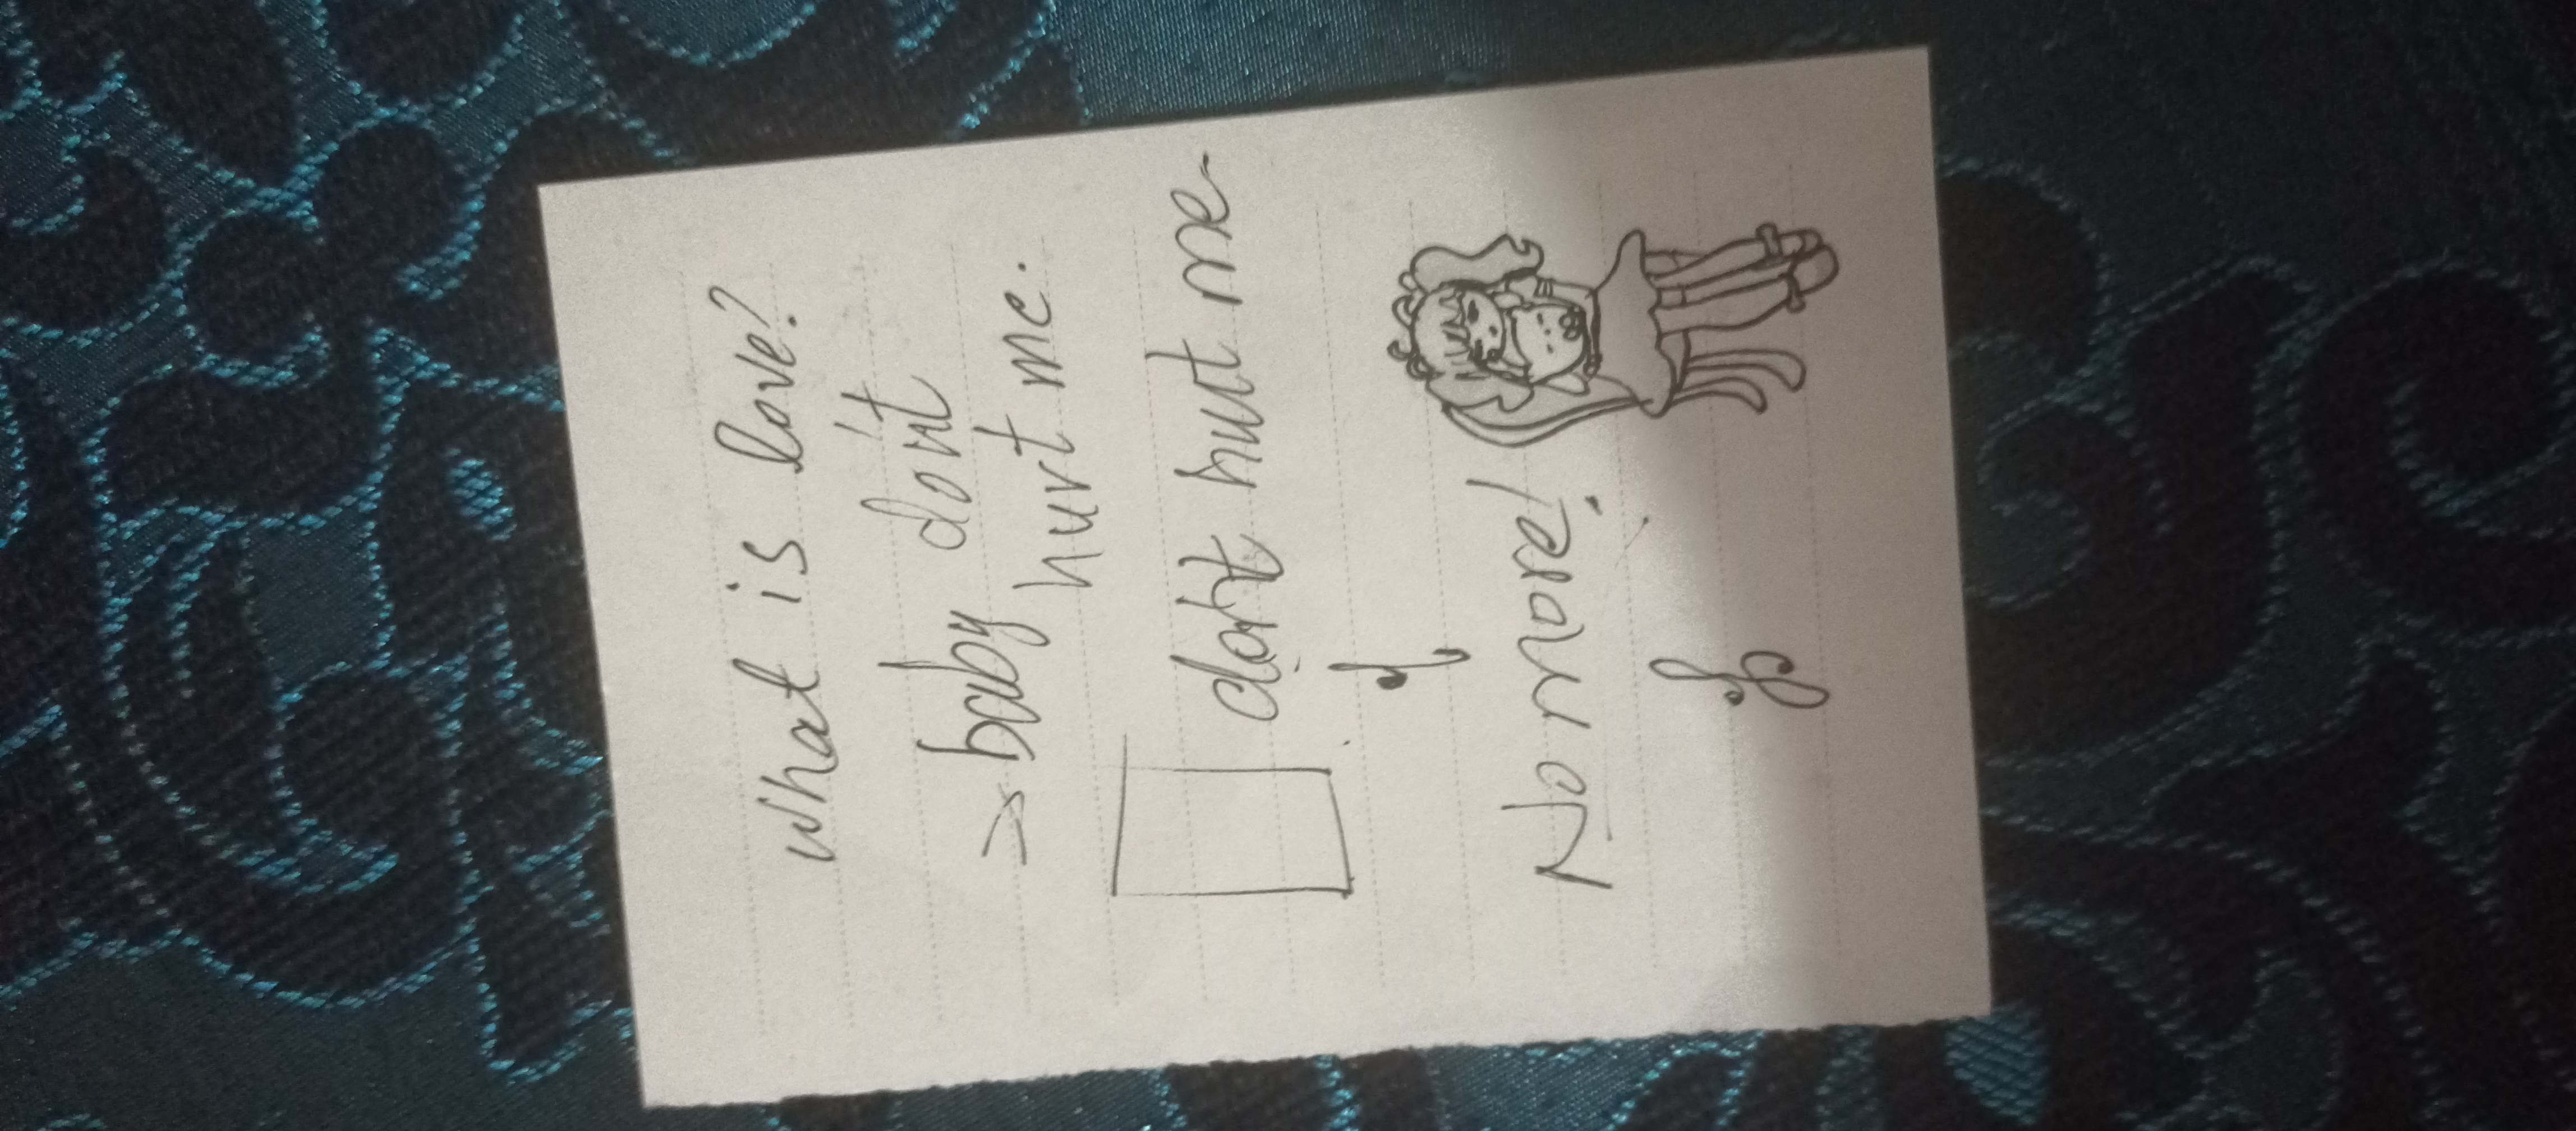 What is love?
> baby don't
hurt me.
don't hurt me
No more!